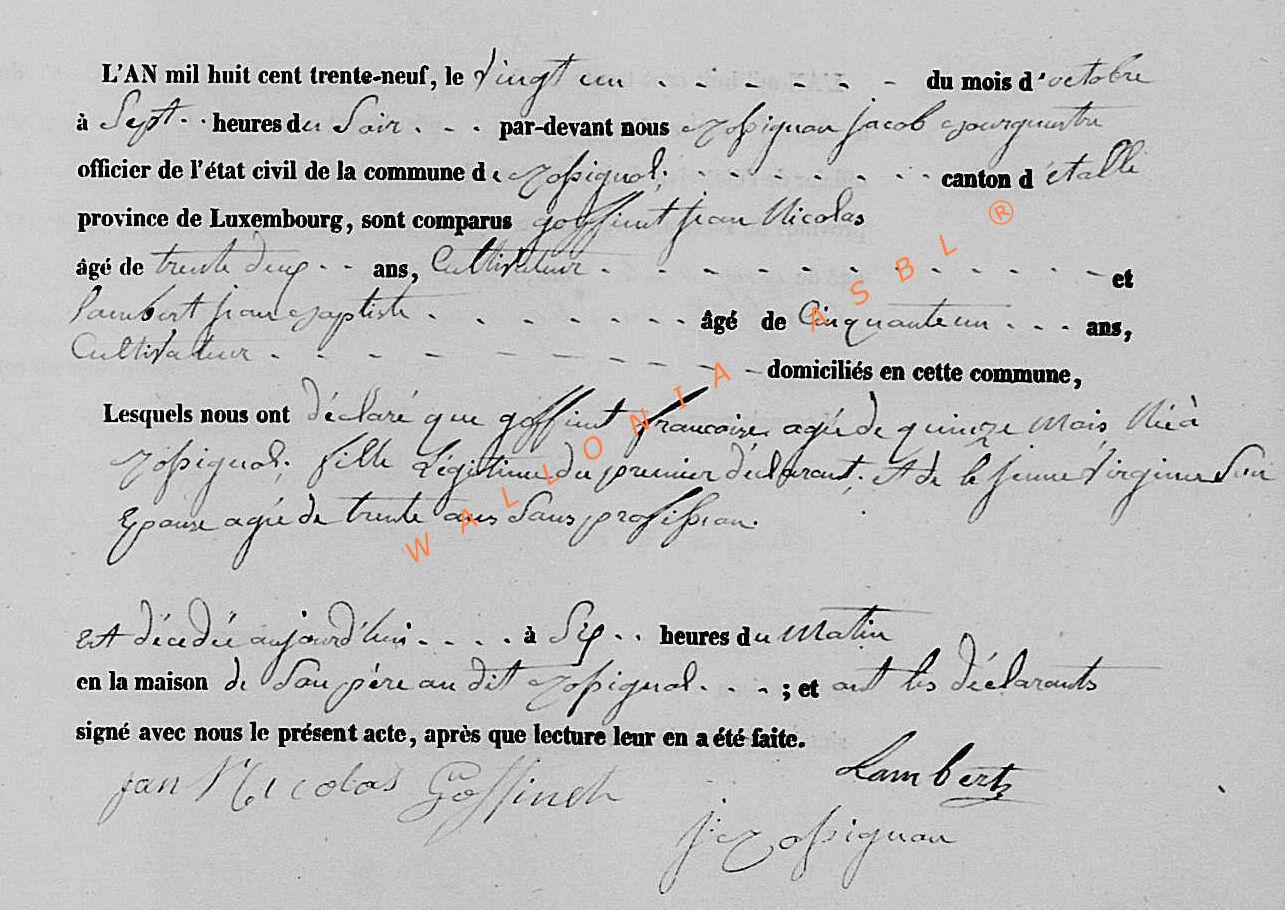 L'AN mil huit cent trente-neuf, le vingt un - - - - - - du mois d'octobre
à Sept - - heures du Soir - - - par-devant nous Rossignon jacob Bourgmestre
officier de l'état civil de la commune de Rossignol, - - - - - - - - canton d'étalle
province de Luxembourg, sont comparus goffinet jean Nicolas
âgé de trente deux - - ans, Cultivateur - - - - - - - - - - - - - et
Lambert jean Baptiste - - - - - - - âgé de Cinquante un - - - ans,
Cultivateur - - - - - - - - - - - domiciliés en cette commune,
Lesquels nous ont déclaré que goffinet francoise agée de quinze Mois Née à
Rossignol, fille Légitime du premier déclarant, et de Virginie Son
Epouse agée de trente ans Sans profession.
Est décedée aujourd'hui - - - - à Six - - heures du Matin
en la maison de Son père au dit Rossignol - - - ; et ont les déclarants
signé avec nous le présent acte, après que lecture leur en a été faite.
jan Nicolas Goffinet
Lambert
j: Rossignon
WALLONIA ASBL ®